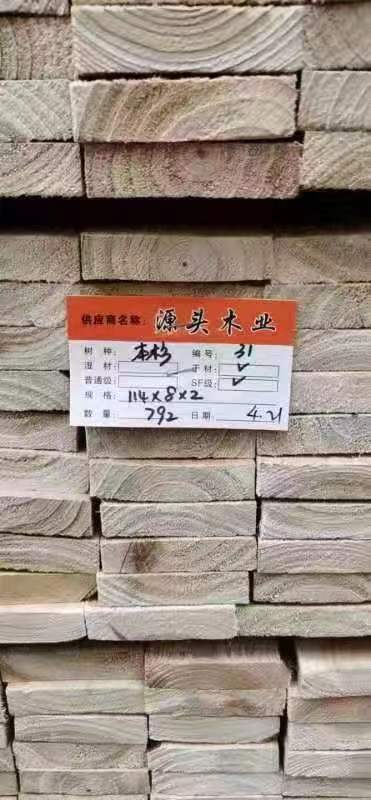 供应商名称：源头木业
树 种：本杉 编 号：31
湿 材： 干 材：✓
普通级： SF级：✓
规 格：114×8×2
数 量：792 日 期：4.21